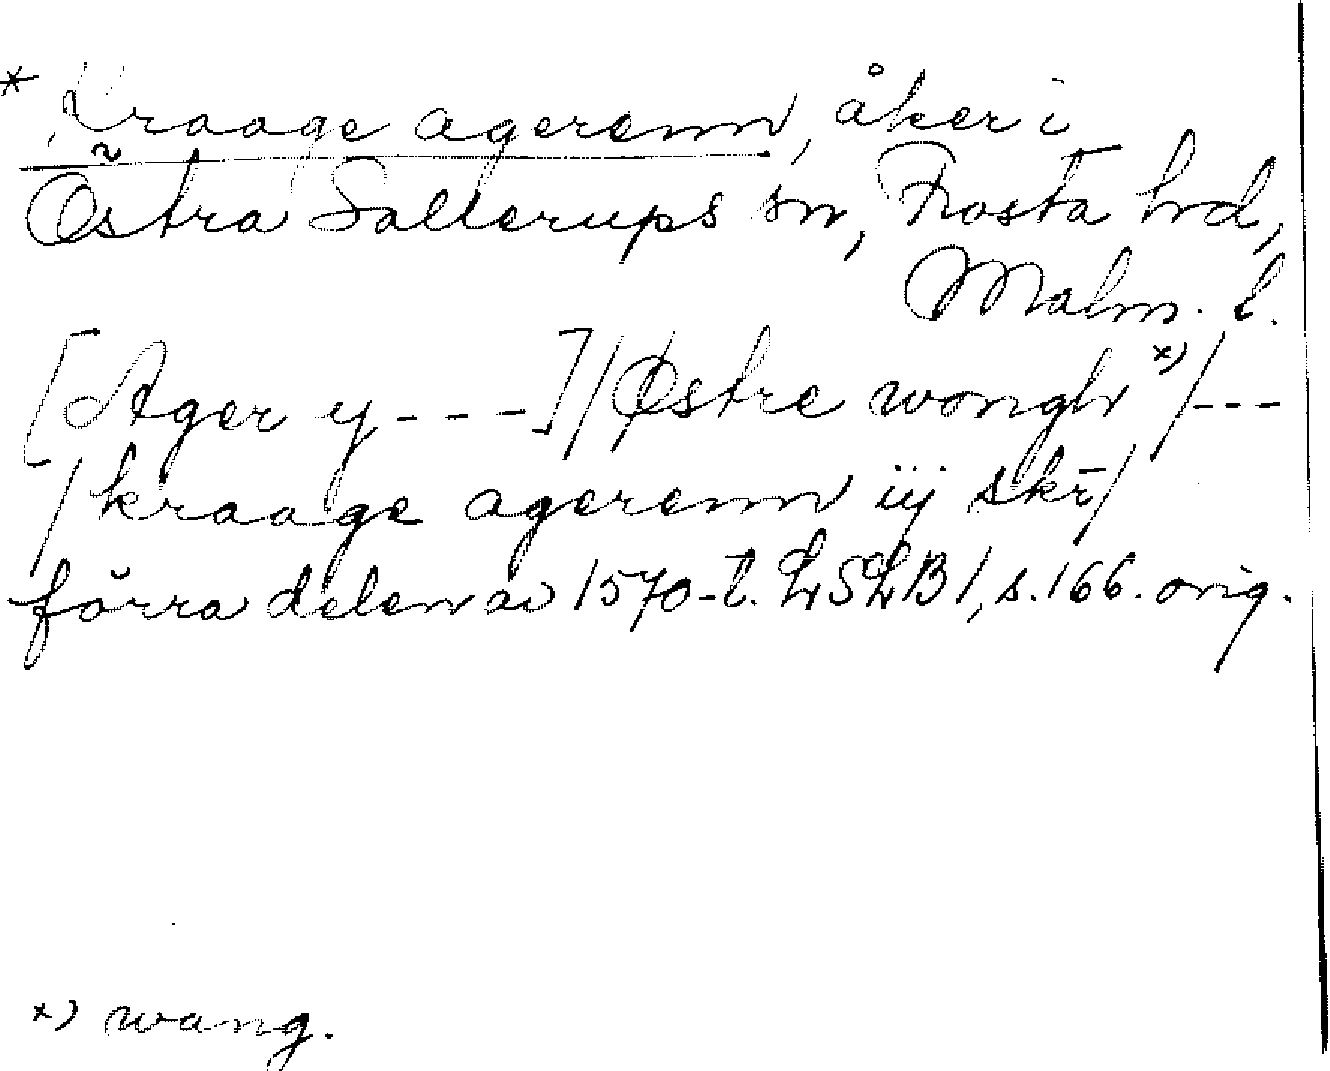 * Kraage agerenn, åker i
Östra Sallerups sn, Frosta hd,
Malm. l.
[Ager y---]/Østre wongh x)/---
/kraage agerenn iij skr̄/
förra delen av 1570-t. LSLB1, s.166. orig.
x) wang.